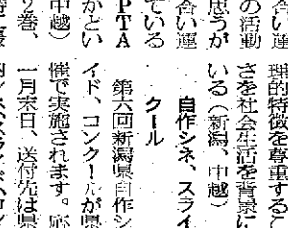 理的特徴を尊重するこ
さを社会生活を背景に
いる（新潟、中越）
自作シネ、スライ
クール
第六回新潟県自作シ
イド、コンクールが県
催で実施されます。応
一月末日、送付先は県
合い運
の活動
思うが
合い運
ている
PTA
かとい
中越）
り巻、